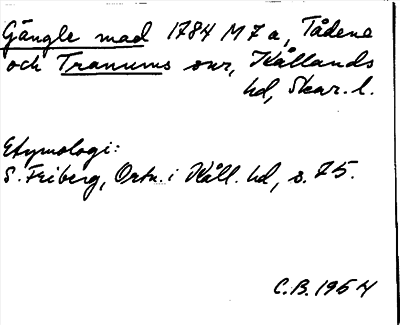 Gängle mad 1784 M7a, Tådene
och Tranums snr, Kållands
hd, Skar. l.
Etymologi:
S. Friberg, Ortn. i Kåll. hd, s. 75.
C.B. 1954